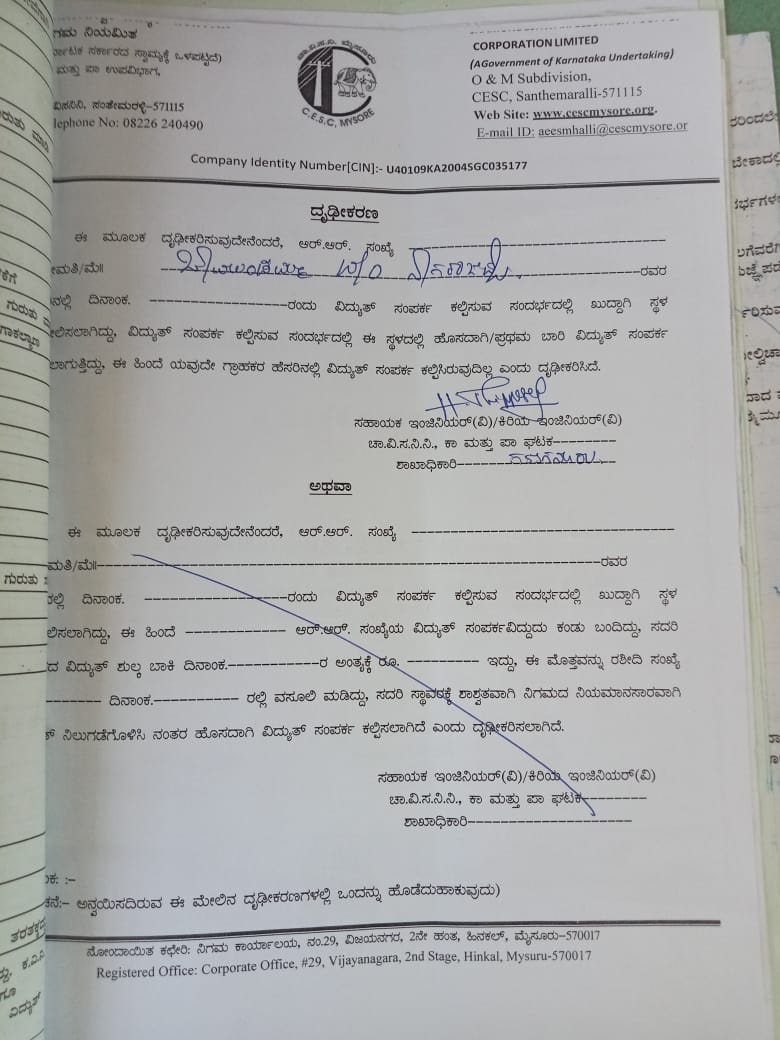 ಗಮ ನಿಯಮಿತ
ರ್ನಾಟಕ ಸರ್ಕಾರದ ಸ್ವಾಮ್ಯಕ್ಕೆ ಒಳಪಟ್ಟಿದೆ)
ಮತ್ತು ಪಾ ಉಪವಿಭಾಗ,
ವಿಸನಿನಿ, ಸಂತೇಮರಳ್ಳಿ-571115
lephone No: 08226 240490
ಚಾ.ವಿ.ಸ.ನಿ.ನಿ. ಮೈಸೂರು
C.E.S.C, MYSORE
CORPORATION LIMITED
(AGovernment of Karnataka Undertaking)
O & M Subdivision,
CESC, Santhemaralli-571115
Web Site: www.cescmysore.org.
E-mail ID: aeesmhalli@cescmysore.or
Company Identity Number[CIN]:- U40109KA2004SGC035177
ದೃಢೀಕರಣ
ಈ ಮೂಲಕ ದೃಢೀಕರಿಸುವುದೇನೆಂದರೆ, ಆರ್.ಆರ್. ಸಂಖ್ಯೆ ------------------------------------
ೀಮತಿ/ಮೆ॥ ------------------------------------ರವರ
ನಲ್ಲಿ ದಿನಾಂಕ. --------------------ರಂದು ವಿದ್ಯುತ್ ಸಂಪರ್ಕ ಕಲ್ಪಿಸುವ ಸಂದರ್ಭದಲ್ಲಿ ಖುದ್ದಾಗಿ ಸ್ಥಳ
ಲಿಸಲಾಗಿದ್ದು, ವಿದ್ಯುತ್ ಸಂಪರ್ಕ ಕಲ್ಪಿಸುವ ಸಂದರ್ಭದಲ್ಲಿ ಈ ಸ್ಥಳದಲ್ಲಿ ಹೊಸದಾಗಿ/ಪ್ರಥಮ ಬಾರಿ ವಿದ್ಯುತ್ ಸಂಪರ್ಕ
ಲಾಗುತ್ತಿದ್ದು, ಈ ಹಿಂದೆ ಯವುದೇ ಗ್ರಾಹಕರ ಹೆಸರಿನಲ್ಲಿ ವಿದ್ಯುತ್ ಸಂಪರ್ಕ ಕಲ್ಪಿಸಿರುವುದಿಲ್ಲ ಎಂದು ದೃಢೀಕರಿಸಿದೆ.
ಸಹಾಯಕ ಇಂಜಿನಿಯರ್(ವಿ)/ಕಿರಿಯ ಇಂಜಿನಿಯರ್(ವಿ)
ಚಾ.ವಿ.ಸ.ನಿ.ನಿ., ಕಾ ಮತ್ತು ಪಾ ಘಟಕ---------
ಶಾಖಾಧಿಕಾರಿ---------
ಅಥವಾ
ಈ ಮೂಲಕ ದೃಢೀಕರಿಸುವುದೇನೆಂದರೆ, ಆರ್.ಆರ್. ಸಂಖ್ಯೆ ------------------------------------
ಮತಿ/ಮೆ॥------------------------------------ರವರ
ರಲ್ಲಿ ದಿನಾಂಕ. --------------------ರಂದು ವಿದ್ಯುತ್ ಸಂಪರ್ಕ ಕಲ್ಪಿಸುವ ಸಂದರ್ಭದಲ್ಲಿ ಖುದ್ದಾಗಿ ಸ್ಥಳ
ಲಿಸಲಾಗಿದ್ದು, ಈ ಹಿಂದೆ ------------- ಆರ್.ಆರ್. ಸಂಖ್ಯೆಯ ವಿದ್ಯುತ್ ಸಂಪರ್ಕವಿದ್ದುದು ಕಂಡು ಬಂದಿದ್ದು, ಸದರಿ
ದ ವಿದ್ಯುತ್ ಶುಲ್ಕ ಬಾಕಿ ದಿನಾಂಕ.------------ರ ಅಂತ್ಯಕ್ಕೆ ರೂ. --------- ಇದ್ದು, ಈ ಮೊತ್ತವನ್ನು ರಶೀದಿ ಸಂಖ್ಯೆ
-------- ದಿನಾಂಕ.------------ ರಲ್ಲಿ ವಸೂಲಿ ಮಡಿದ್ದು, ಸದರಿ ಸ್ಥಾವರಕ್ಕೆ ಶಾಶ್ವತವಾಗಿ ನಿಗಮದ ನಿಯಮಾನಸಾರವಾಗಿ
ನಿಲುಗಡೆಗೊಳಿಸಿ ನಂತರ ಹೊಸದಾಗಿ ವಿದ್ಯುತ್ ಸಂಪರ್ಕ ಕಲ್ಪಿಸಲಾಗಿದೆ ಎಂದು ದೃಢೀಕರಿಸಲಾಗಿದೆ.
ಸಹಾಯಕ ಇಂಜಿನಿಯರ್(ವಿ)/ಕಿರಿಯ ಇಂಜಿನಿಯರ್(ವಿ)
ಚಾ.ವಿ.ಸ.ನಿ.ನಿ., ಕಾ ಮತ್ತು ಪಾ ಘಟಕ---------
ಶಾಖಾಧಿಕಾರಿ---------------------
ಂಕ: :-
ಚನೆ:- ಅನ್ವಯಿಸದಿರುವ ಈ ಮೇಲಿನ ದೃಢೀಕರಣಗಳಲ್ಲಿ ಒಂದನ್ನು ಹೊಡೆದುಹಾಕುವುದು)
ನೋಂದಾಯಿತ ಕಛೇರಿ: ನಿಗಮ ಕಾರ್ಯಾಲಯ, ನಂ.29, ವಿಜಯನಗರ, 2ನೇ ಹಂತ, ಹಿನಕಲ್, ಮೈಸೂರು-570017
Registered Office: Corporate Office, #29, Vijayanagara, 2nd Stage, Hinkal, Mysuru-570017